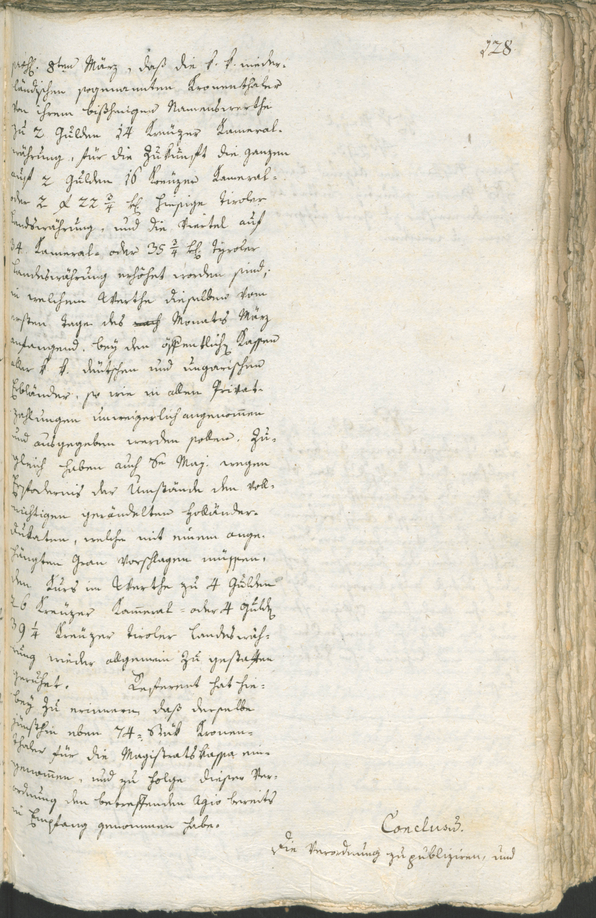 128
8ten März, daß die k. k. nieder-
ländischen sogenannten Kronenthaler
von ihrem bißherigen Namenswerthe
zu 2 Gulden 14 Kreuzer Kameral-
währung, für die Zukunft die ganzen
auf 2 Gulden 16 Kreuzer Kameral-
oder 2 f 22 3/4 kr hiesige tiroler
Landeswährung, und die Viertel auf
34 Kameral- oder 35 3/4 kr tyroler
Landeswährung erhöhet worden sind,
in welchem Werthe dieselben vom
ersten Tage des Monats März
anfangend, bey den öffentlichen Kassen
aller k. k. deutschen und ungarischen
Erbländer, so wie in allen Privat-
zahlungen unweigerlich angenommen
und ausgegeben werden sollen. Zu-
gleich haben auch Se Maj. wegen
Erfodernis der Umstände den voll-
wichtigen geränderten Holländer-
dukaten, welche mit einem ange-
hängten Gran vorschlagen müssen,
den Kurs im Werthe zu 4 Gulden
26 Kreuzer Kameral- oder 4 Gulden
39 1/4 Kreuzer tiroler Landeswäh-
rung wieder allgemein zu gestatten
geruhet. Referent hat hie-
bey zu erinnern, daß derselbe
eben 74 Stük Kronen-
thaler für die Magistratskassa ein-
genommen, und zu Folge dieser Ver-
ordnung den betreffenden Agio bereits
in Empfang genommen habe.
Conclusum.
Die Verordnung zu publiziren, und